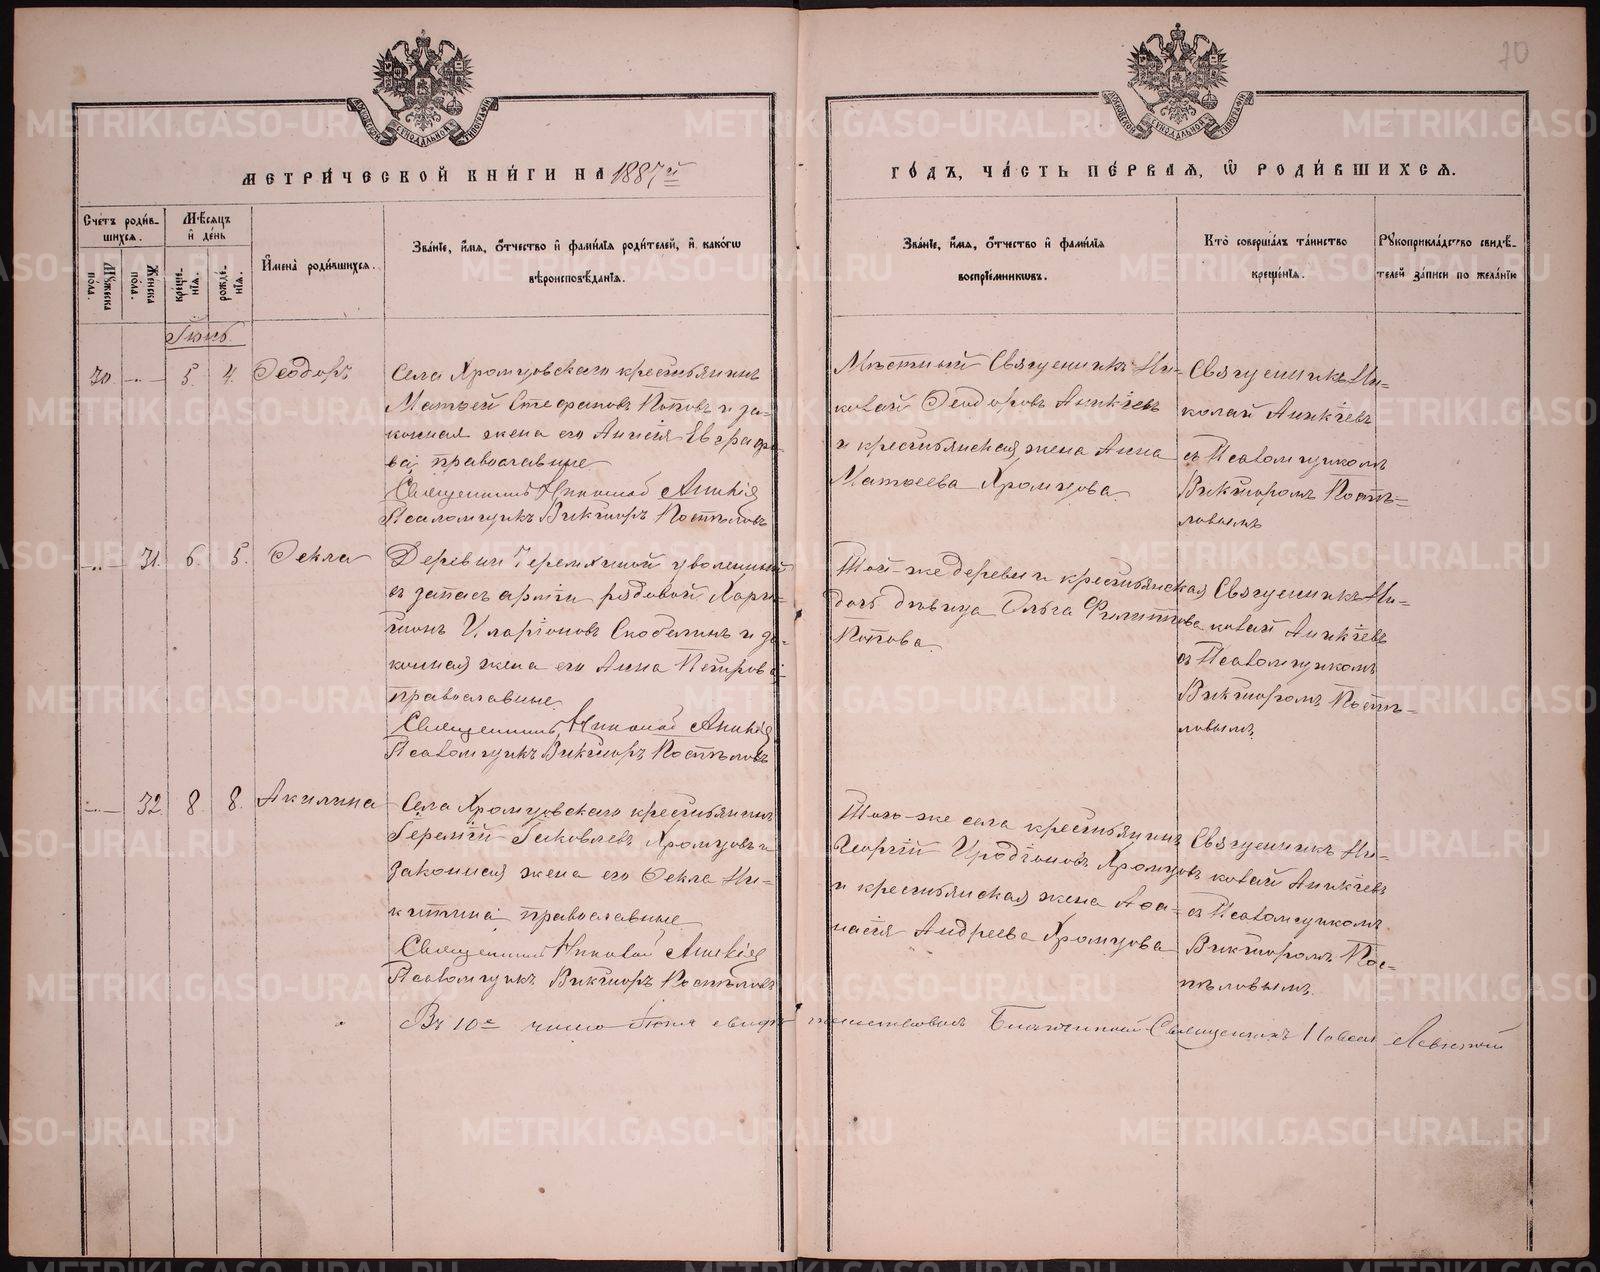 70
МОСКОВСКОЙ СѴНОДАЛЬНОЙ ТИПОГРАФІИ
МОСКОВСКОЙ СѴНОДАЛЬНОЙ ТИПОГРАФІИ
МЕТРИ́ЧЕСКОЙ КНИ́ГИ НА 1887й
ГО́ДЪ, ЧА́СТЬ ПЕ́РВАЯ, Ѡ РОДИ́ВШИХСЯ.
Сче́тъ роди́в-
шихся.
Мѣсяцъ
и де́нь
Му́жеска
пола.
Же́нска
пола.
креще-
нія.
рожде-
нія.
И҆мена̀ роди́вшихся.
Зва́ніе, и҆́мя, о҆́тчество и҆ фами́лія роди́телей, и҆ како́гѡ
вѣроисповѣ́данія.
Зва́ніе, и҆́мя, о҆́тчество и҆ фами́лія
воспріе́мниковъ.
Кто̀ соверша́лъ та́инство
креще́нія.
Рꙋкоприкла́дство свидѣ́-
телей за́писи по жела́нію
Іюнь
30. -„- 5. 4. Ѳеодоръ
Села Хромцовскаго крестьянинъ
Матѳей Стефановъ Поповъ и за-
конная жена его Анисія Евграфо-
ва, православные
Священникъ Николай Аникіев
Псаломщикъ Викторъ Постѣловъ
Мѣстный Священникъ Ни-
колай Ѳеодоровъ Аникіевъ
и крестьянская жена Анна
Матѳеева Хромцова.
Священникъ Ни-
колай Аникіевъ
съ Псаломщикомъ
Викторомъ Постѣ-
ловымъ
-„- 31. 6. 5. Ѳекла
Деревни Черемхиной уволенный
въ запасъ арміи рядовой Хари-
тонъ Иларіоновъ Скобелинъ и за-
конная жена его Анна Петрова,
православные.
Священникъ Николай Аникіев
Псаломщикъ Викторъ Постѣловъ
Той-же деревни крестьянская
дочь дѣвица Ольга Филиппова
Попова.
Священникъ Ни-
колай Аникіевъ
съ Псаломщикомъ
Викторомъ Постѣ-
ловымъ.
-„- 32. 8. 8. Акилина
Села Хромцовскаго крестьянинъ
Іеремій Іаковлевъ Хромцовъ и
законная жена его Ѳекла Ни-
китина, православные
Священникъ Николай Аникіев
Псаломщикъ Викторъ Постѣловъ
Того-же села крестьянинъ
Георгій Иродіоновъ Хромцовъ
и крестьянская жена Аѳа-
насія Андреева Хромцова
Священникъ Ни-
колай Аникіевъ
съ Псаломщикомъ
Викторомъ Пос-
тѣловымъ.
Въ 10е число Іюня свидѣтельствовал Благочинный Священникъ
METRIKI.GASO-URAL.RU